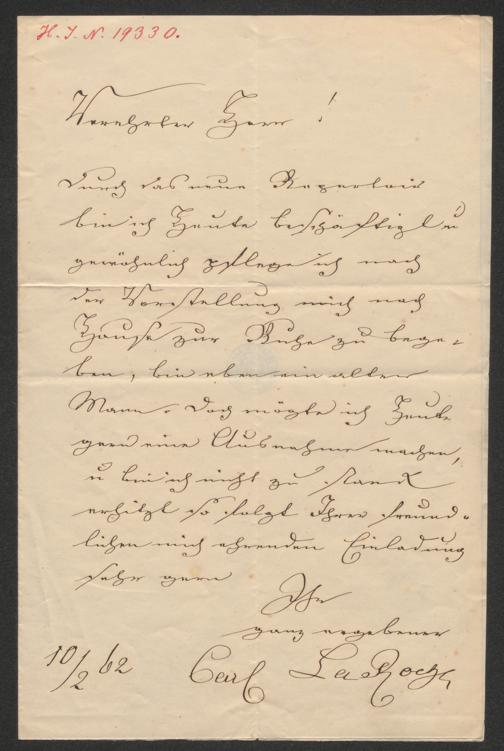 H. I. N. 19330.
Verehrter Herr!
Durch das neue Repertoir
bin ich Heute beschäftigt u
gewöhnlich pflege ich nach
der Vorstellung mich nach
Hause zur Ruhe zu bege-
ben, bin eben ein alter
Mann. Doch mögte ich Heute
gern eine Ausnahme machen,
u bin ich nicht zu
erhitzt so folgt Ihrer freund-
lichen mich ehrenden Einladung
sehr gern
Ihr
ganz ergebener
10/2 62 Carl La Roche